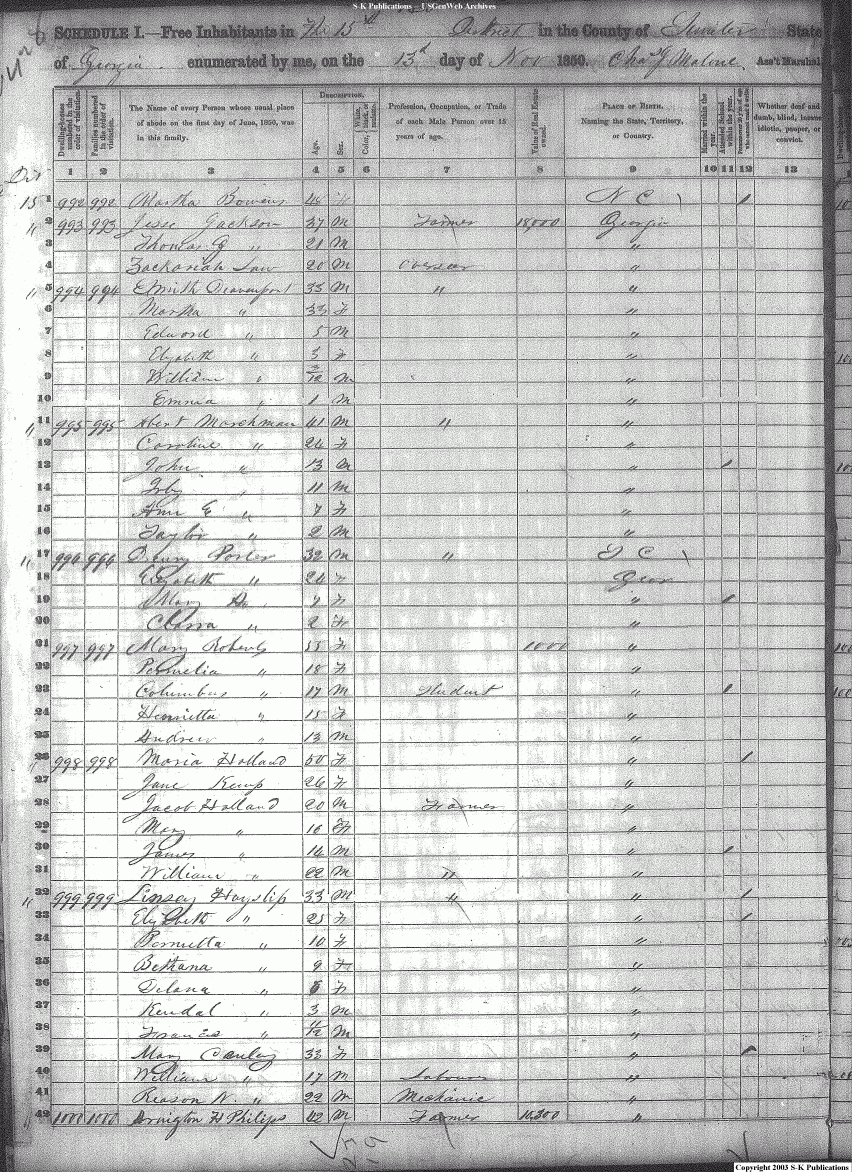 S-K Publications _ USGenWeb Archives
SCHEDULE I.—Free Inhabitants in The 15th District in the County of State
of Georgia enumerated by me, on the 13th day of Nov 1850. Chas J Malone Ass't Marshal
Dwelling-houses numbered in the order of visitation.
Families numbered in the order of visitation.
The Name of every Person whose usual place of abode on the first day of June, 1850, was in this family.
DESCRIPTION.
Age.
Sex.
Color, White, black, or mulatto.
Profession, Occupation, or Trade of each Male Person over 15 years of age.
Value of Real Estate owned.
PLACE OF BIRTH. Naming the State, Territory, or Country.
Married within the year.
Attended School within the year.
Persons over 20 y'rs of age who cannot read & write.
Whether deaf and dumb, blind, insane, idiotic, pauper, or convict.
1 2 3 4 5 6 7 8 9 10 11 12 13
15 1 992 992 Martha Bowens 46 F N C
" 2 993 993 Jesse Jackson 37 M Farmer 18,000 Georgia
3 Thomas G " 21 M "
4 Zachariah Law 20 M Overseer "
" 5 994 994 Davenport 35 M " "
6 Martha " 33 F "
7 Edward " 5 M "
8 Elizabeth " 3 F "
9 William " M "
10 Emma " 1 M "
" 11 995 995 Marchman 41 M " "
12 Caroline " 26 F "
13 John " 13 M "
14 " 11 M "
15 Ann E " 7 F "
16 Taylor " 2 M "
" 17 996 996 Porter 32 M " S C
18 Elizabeth " 24 F Geor
19 Mary " 7 F "
20 Clarra " 2 F "
21 997 997 Mary Roberts 55 F 1000 "
22 Permelia " 18 F "
23 Columbus " 17 M Student "
24 Henrietta " 15 F "
25 Andrew " 13 M "
26 998 998 Maria Holland 50 F "
27 Jane Kemp 26 F "
28 Jacob Holland 20 M Farmer "
29 Mary " 16 F "
30 James " 14 M "
31 William " 22 M " "
" 32 999 999 Linsey Hayslip 33 M " "
33 Elizabeth " 25 F "
34 " 10 F "
35 Bethana " 9 F "
36 Delana " F "
37 Kendal " 3 M "
38 Francis " M "
39 Mary 33 F "
40 William " 17 M Labourer "
41 Reason W. " 22 M Mechanic "
42 1000 1000 Arrington H Philips 42 M Farmer "
Copyright 2003 S-K Publications